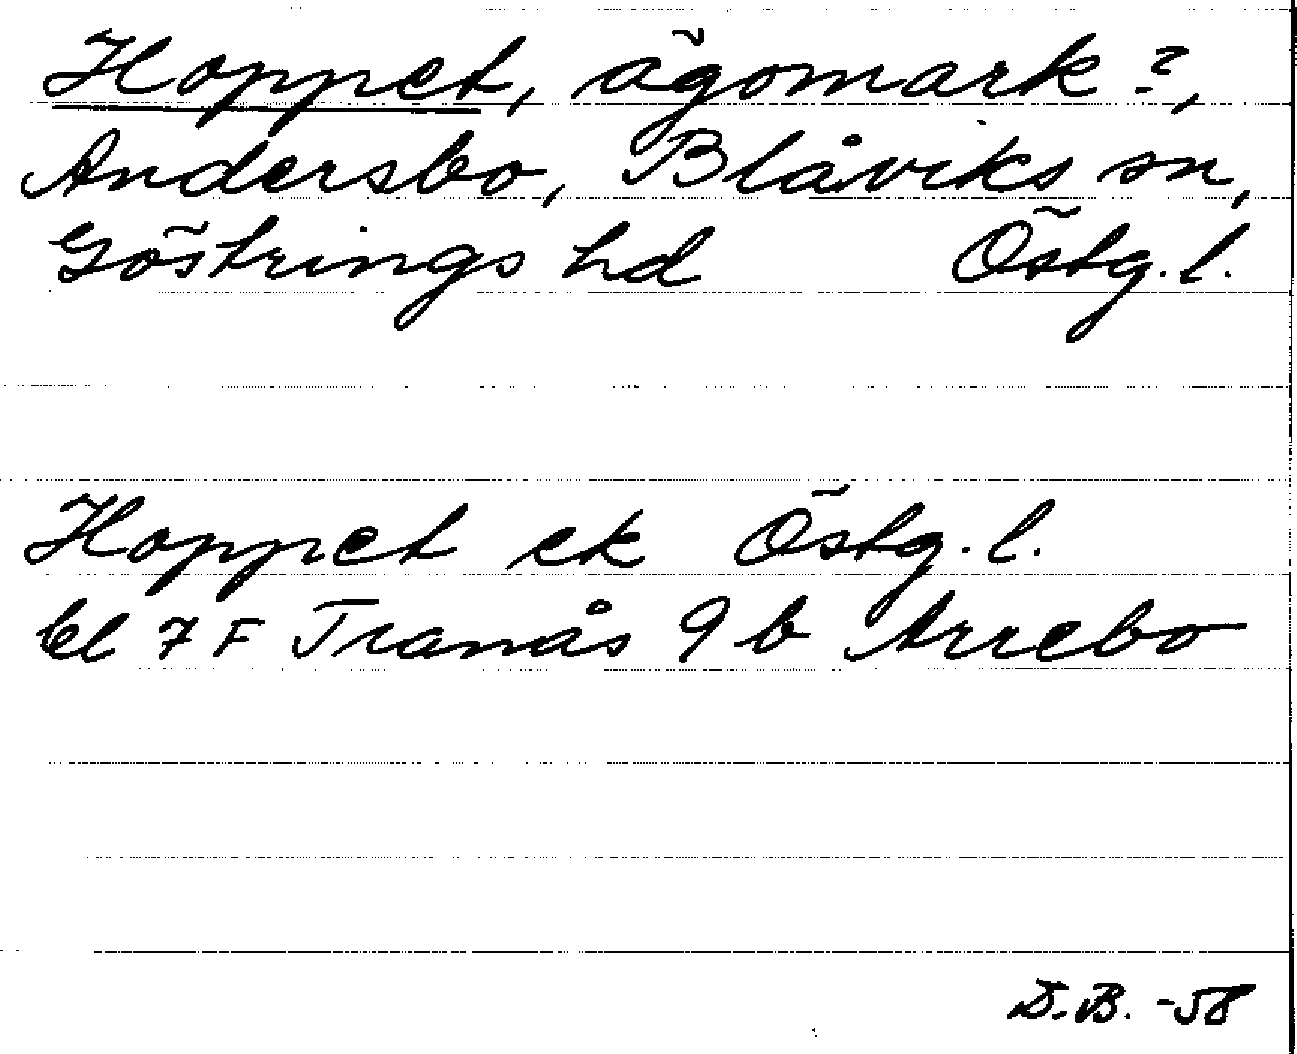 Hoppet, ägomark?,
Andersbo, Blåviks sn,
Göstrings hd Östg. l.
Hoppet ek Östg. l.
bl 7 F Tranås 9 b Arrebo
D.B. -58